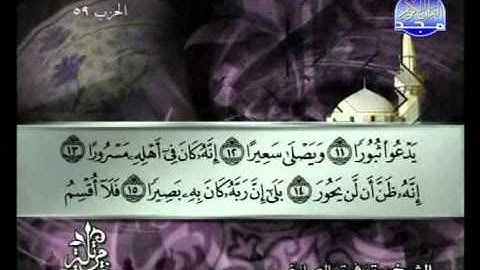 الحزب ٥٩
مجد
يَدْعُوا۟ ثُبُورًا ١١ وَيَصْلَىٰ سَعِيرًا ١٢ إِنَّهُۥ كَانَ فِىٓ أَهْلِهِۦ مَسْرُورًا ١٣
إِنَّهُۥ ظَنَّ أَن لَّن يَحُورَ ١٤ بَلَىٰٓ إِنَّ رَبَّهُۥ كَانَ بِهِۦ بَصِيرًا ١٥ فَلَآ أُقْسِمُ